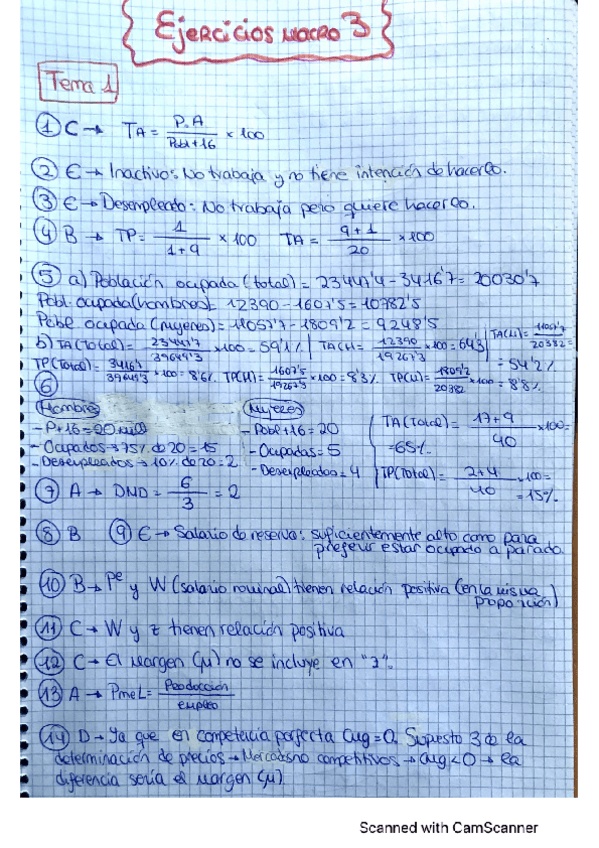 Ejercicios macro 3
Tema 1
① C → TA = P.A / Pobl+16 × 100
② E → Inactivo: No trabaja y no tiene intención de hacerlo.
③ E → Desempleado: No trabaja pero quiere hacerlo.
④ B → TP = 1 / 1+9 × 100 TA = 9+1 / 20 × 100
⑤ a) Población ocupada (total) = 23447'4 - 3416'7 = 20030'7
Pobl. ocupada (hombres) = 12390 - 1607'5 = 10782'5
Pobl ocupada (mujeres) = 11057'7 - 1809'2 = 9248'5
b) TA (Total) = 23447'7 / 39649'3 × 100 = 59'1% TA (H) = 12390 / 19267'3 × 100 = 64'3 TA (M) = 11057'7 / 20382 = 54'2%
TP (Total) = 3416'7 / 39649'3 × 100 = 8'6% TP (H) = 1607'5 / 19267'5 × 100 = 8'3% TP (M) = 1809'2 / 20382 × 100 = 8'8%
⑥
Hombres Mujeres
- P+16 = 20 mill - Pobl+16 = 20 TA (Total) = 17+9 / 40 × 100 =
- Ocupados → 75% de 20 = 15 - Ocupadas = 5 = 65%
- Desempleados → 10% de 20 = 2 - Desempleadas = 4 TP (Total) = 2+4 / 40 × 100 = = 15%
⑦ A → DND = 6 / 3 = 2
⑧ B ⑨ E → Salario de reserva: suficientemente alto como para
preferir estar ocupado a parado.
⑩ B → Pe y W (salario nominal) tienen relación positiva (en la misma
proporción)
⑪ C → W y z tienen relación positiva
⑫ C → El margen (μ) no se incluye en "z".
⑬ A → PmeL = Producción / empleo
⑭ D → Ya que en competencia perfecta = 0. Supuesto 3 de la
determinación de precios → Mercados no competitivos → < 0 → la
diferencia sería el margen (μ)
Scanned with CamScanner